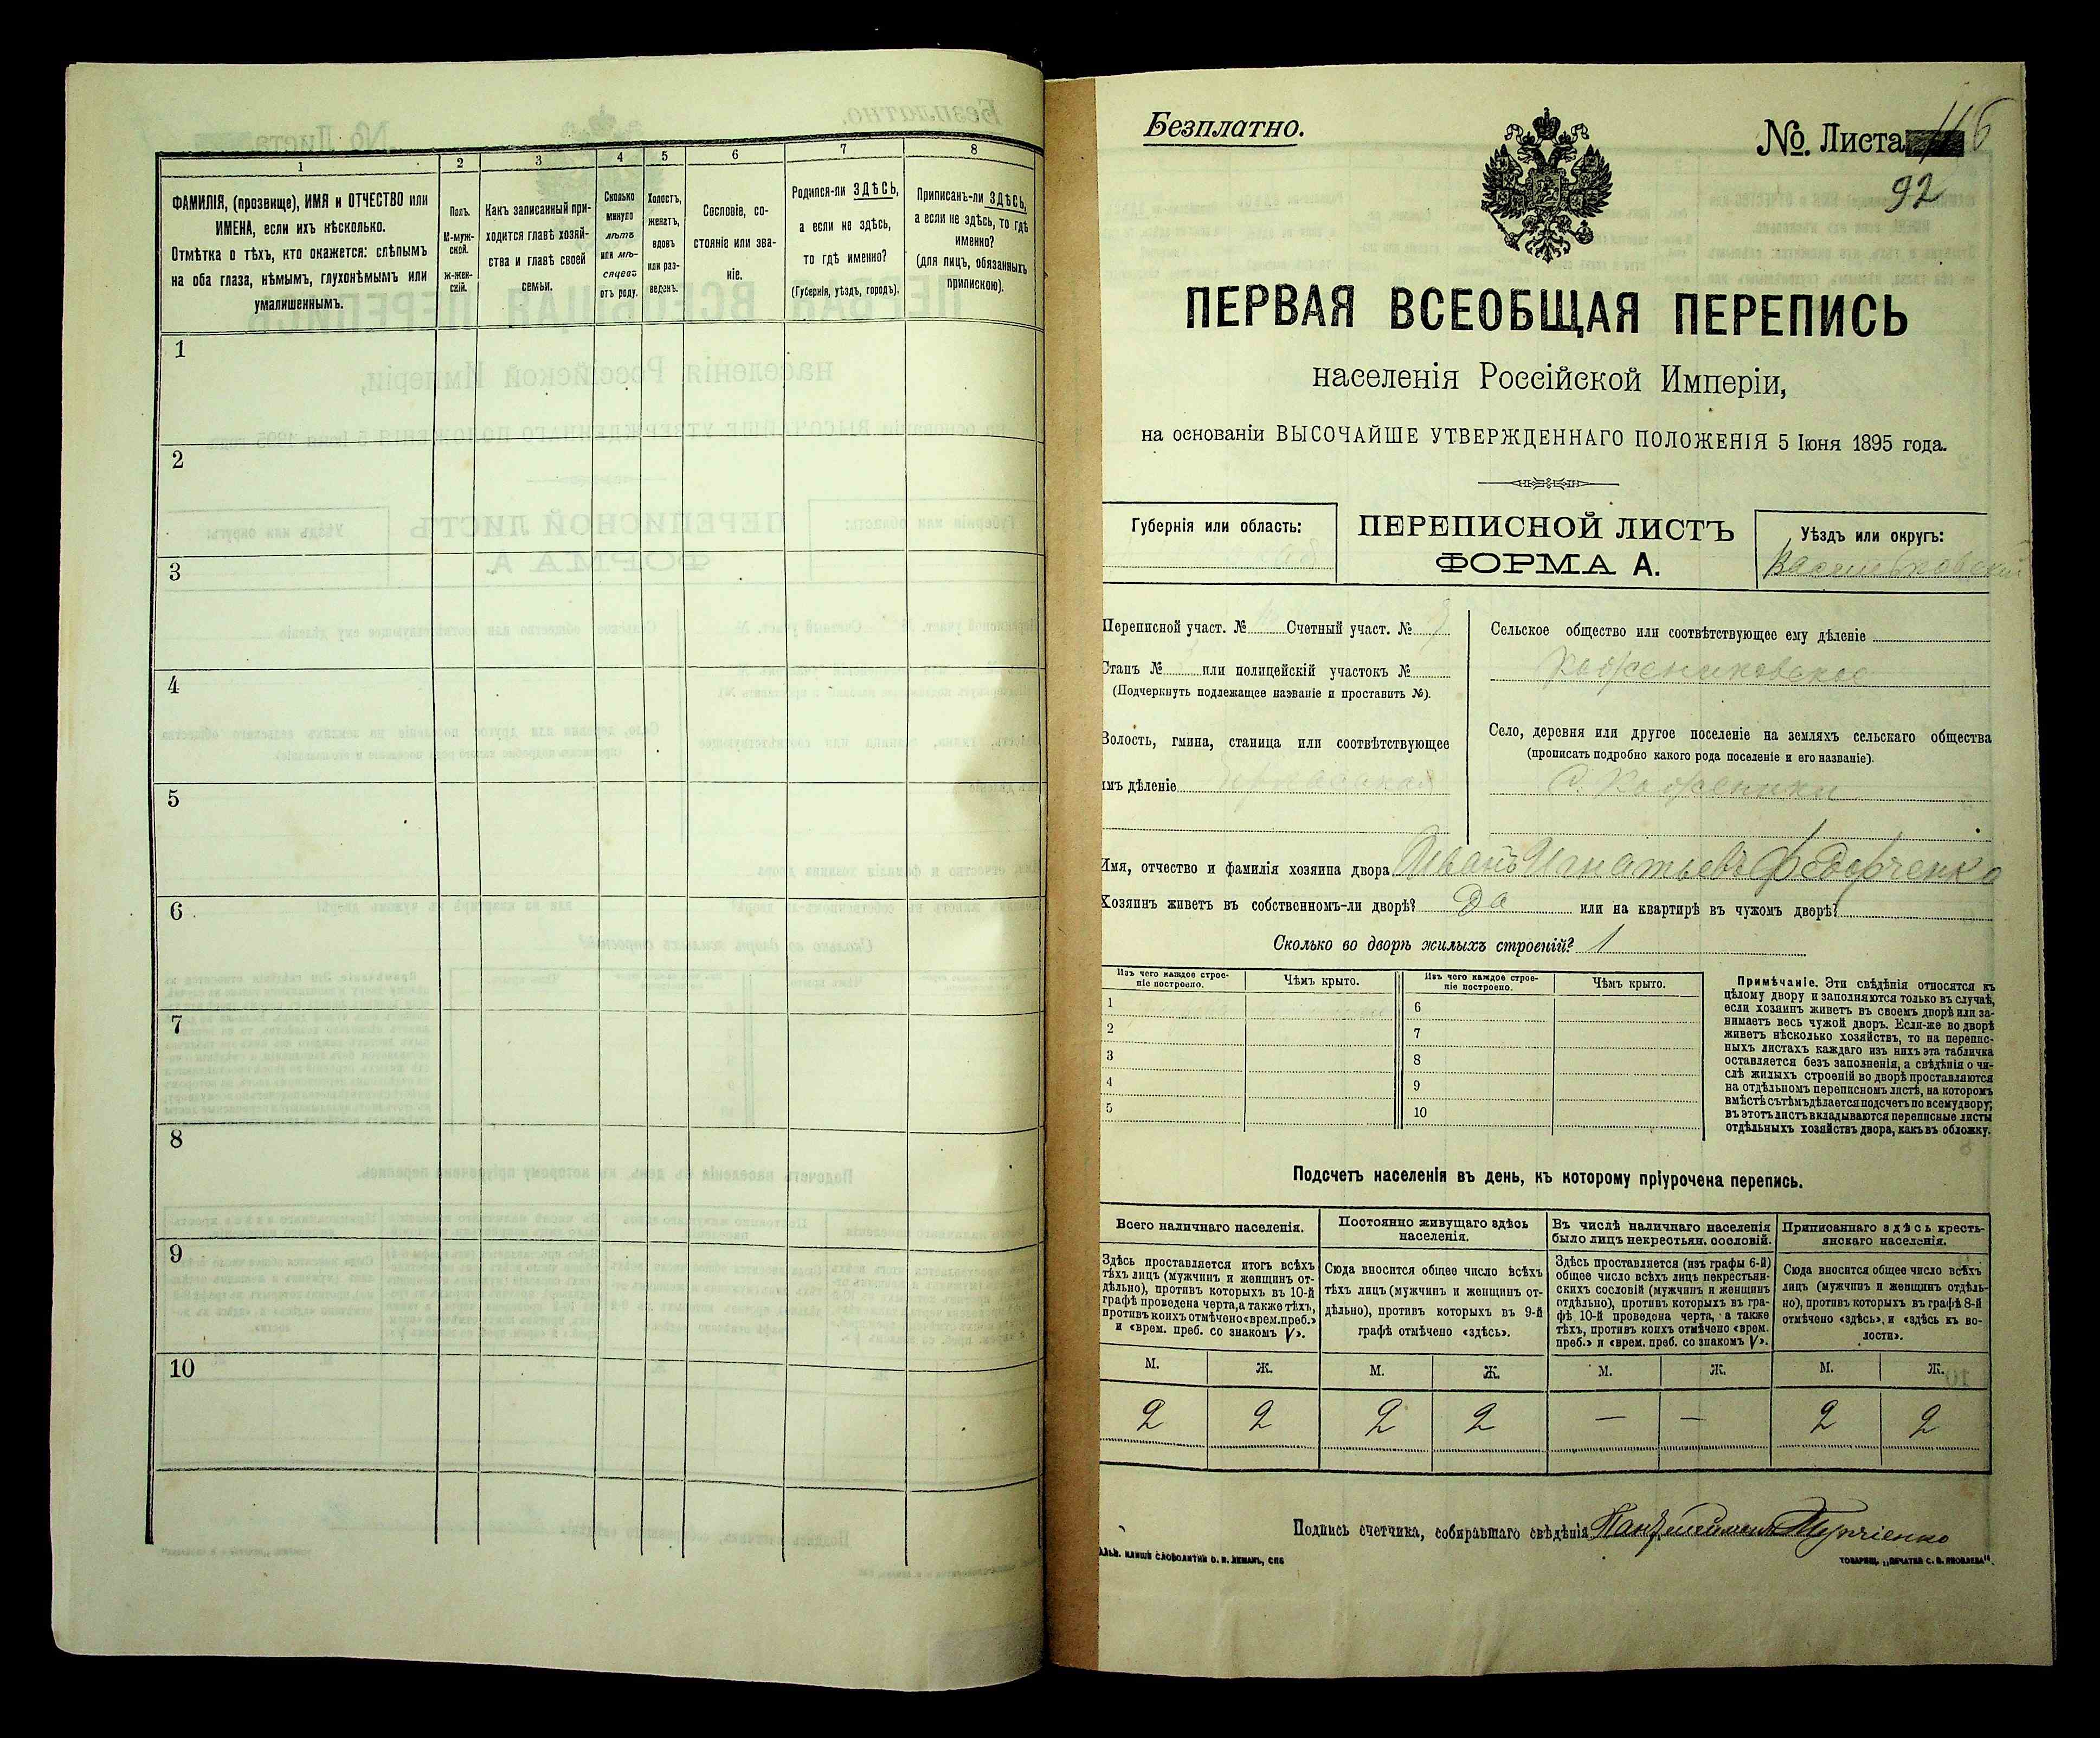 1
2
3
4
5
6
7
8
ФАМИЛІЯ, (прозвище), ИМЯ и ОТЧЕСТВО или
ИМЕНА, если ихъ нѣсколько.
Отмѣтка о тѣхъ, кто окажется: слѣпымъ
на оба глаза, нѣмымъ, глухонѣмымъ или
умалишеннымъ.
Полъ.
М-муж-
ской.
ж-жен-
скій.
Какъ записанный при-
ходится главѣ хозяй-
ства и главѣ своей
семьи.
Сколько
минуло
лѣтъ
или мѣ-
сяцевъ
отъ роду.
Холостъ,
женатъ,
вдовъ
или раз-
веденъ.
Сословіе, со-
стояніе или зва-
ніе.
Родился-ли ЗДѢСЬ,
а если не здѣсь,
то гдѣ именно?
(Губернія, уѣздъ, городъ).
Приписанъ-ли ЗДѢСЬ,
а если не здѣсь, то гдѣ
именно?
(для лицъ, обязанныхъ
припискою).
1
2
3
4
5
6
7
8
9
10
Безплатно.
№. Листа 116
92
ПЕРВАЯ ВСЕОБЩАЯ ПЕРЕПИСЬ
населенія Россійской Имперіи,
на основаніи ВЫСОЧАЙШЕ УТВЕРЖДЕННАГО ПОЛОЖЕНІЯ 5 Іюня 1895 года.
Губернія или область:
ПЕРЕПИСНОЙ ЛИСТЪ
ФОРМА А.
Уѣздъ или округъ:
Васильковскій
Переписной участ. № Счетный участ. №
Станъ № или полицейскій участокъ №
(Подчеркнуть подлежащее названіе и проставить №).
Волость, гмина, станица или соотвѣтствующее
имъ дѣленіе
Сельское общество или соотвѣтствующее ему дѣленіе
Кожениковское
Село, деревня или другое поселеніе на земляхъ сельскаго общества
(прописать подробно какого рода поселеніе и его названіе).
С. Коженики
Имя, отчество и фамилія хозяина двора Иванъ Игнатьевъ Федорченко
Хозяинъ живетъ въ собственномъ-ли дворѣ? Да или на квартирѣ въ чужомъ дворѣ?
Сколько во дворѣ жилыхъ строеній? 1
Изъ чего каждое строе-
ніе построено.
Чѣмъ крыто.
Изъ чего каждое строе-
ніе построено.
Чѣмъ крыто.
1
2
3
4
5
6
7
8
9
10
Примѣчаніе. Эти свѣдѣнія относятся къ
цѣлому двору и заполняются только въ случаѣ,
если хозяинъ живетъ въ своемъ дворѣ или за-
нимаетъ весь чужой дворъ. Если-же во дворѣ
живетъ нѣсколько хозяйствъ, то на перепис-
ныхъ листахъ каждаго изъ нихъ эта табличка
оставляется безъ заполненія, а свѣдѣнія о чи-
слѣ жилыхъ строеній во дворѣ проставляются
на отдѣльномъ переписномъ листѣ, на которомъ
вмѣстѣ съ тѣмъ дѣлается подсчетъ по всему двору;
въ этотъ листъ вкладываются переписные листы
отдѣльныхъ хозяйствъ двора, какъ въ обложку.
Подсчетъ населенія въ день, къ которому пріурочена перепись.
Всего наличнаго населенія.
Здѣсь проставляется итогъ всѣхъ
тѣхъ лицъ (мужчинъ и женщинъ от-
дѣльно), противъ которыхъ въ 10-й
графѣ проведена черта, а также тѣхъ,
противъ коихъ отмѣчено «врем. преб.»
и «врем. преб. со знакомъ V».
Постоянно живущаго здѣсь
населенія.
Сюда вносится общее число всѣхъ
тѣхъ лицъ (мужчинъ и женщинъ от-
дѣльно), противъ которыхъ въ 9-й
графѣ отмѣчено «здѣсь».
Въ числѣ наличнаго населенія
было лицъ некрестьян. сословій.
Здѣсь проставляется (изъ графы 6-й)
общее число всѣхъ лицъ некрестьян-
скихъ сословій (мужчинъ и женщинъ
отдѣльно), противъ которыхъ въ гра-
фѣ 10-й проведена черта, а также
тѣхъ, противъ коихъ отмѣчено «врем.
преб.» и «врем. преб. со знакомъ V».
Приписаннаго здѣсь кресть-
янскаго населенія.
Сюда вносится общее число всѣхъ
лицъ (мужчинъ и женщинъ отдѣль-
но), противъ которыхъ въ графѣ 8-й
отмѣчено «здѣсь», и «здѣсь къ во-
лости».
М. Ж. М. Ж. М. Ж. М. Ж.
2 2 2 2 — — 2 2
Подпись счетчика, собиравшаго свѣдѣнія
ТОВАРИЩ. „ПЕЧАТНЯ С. П. ЯКОВЛЕВА".